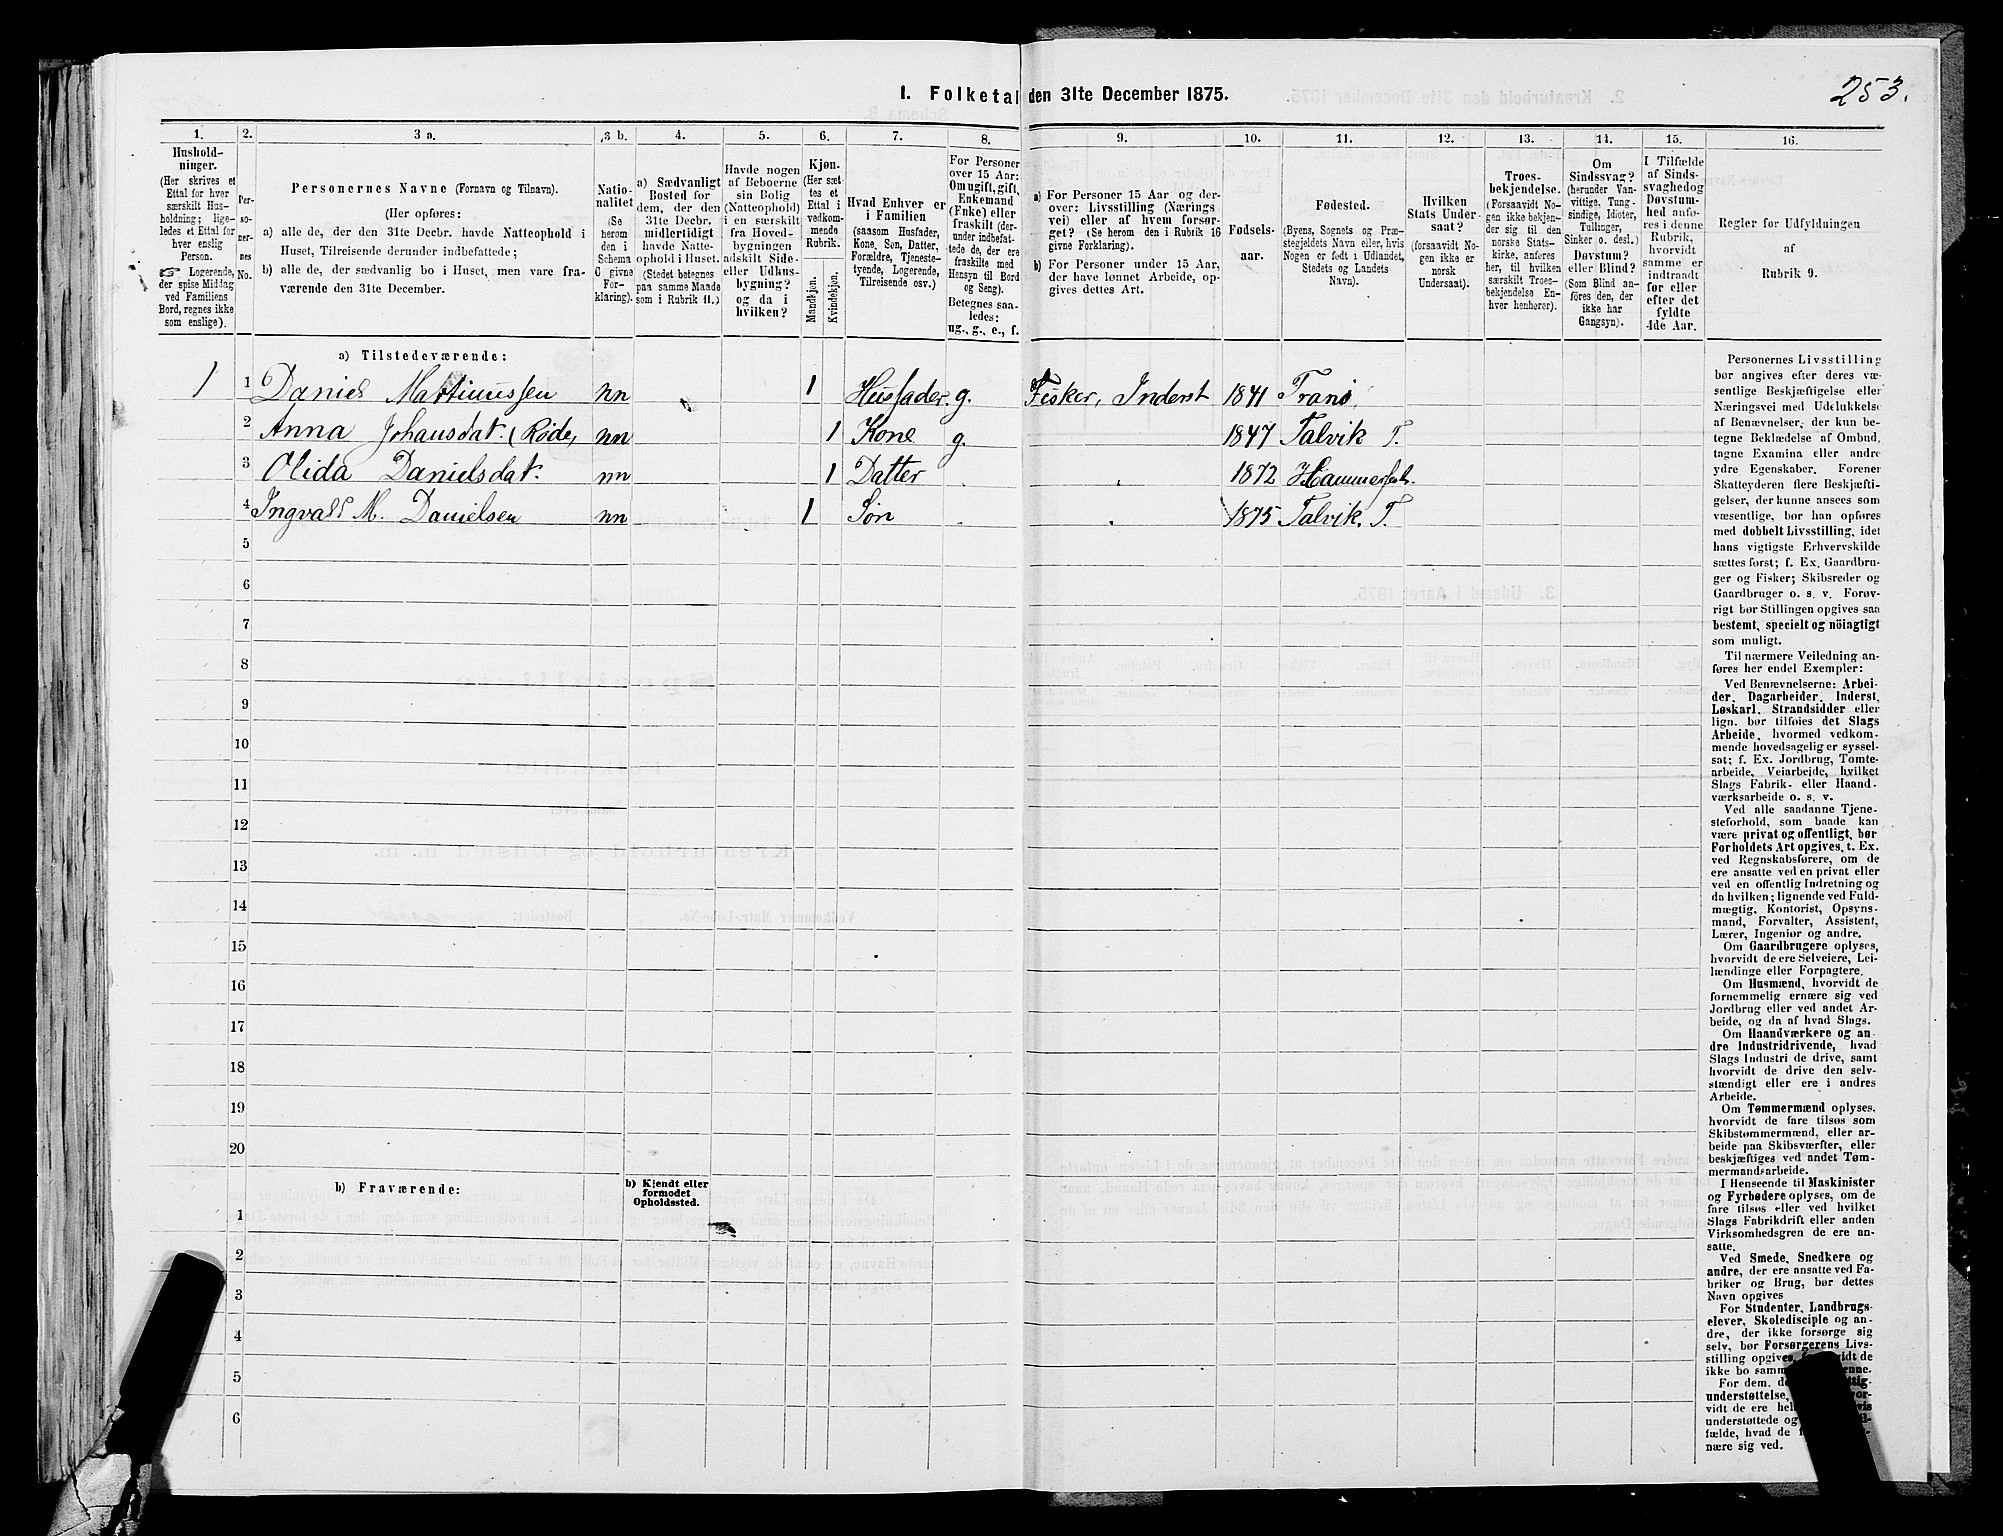 253.
1. Folketal den 31te December 1875.
1. 2. 3 a. 3 b. 4. 5. 6. 7. 8. 9. 10. 11. 12. 13. 14. 15. 16.
Hushold-
ninger.
(Her skrives et
Ettal for hver
særskilt Hus-
holdning; lige-
ledes et Ettal for
hver enslig
Person.
Logerende,
der spise Middag
ved Familiens
Bord, regnes ikke
som enslige).
Per-
so-
ner-
nes
No.
Personernes Navne (Fornavn og Tilnavn).
(Her opføres:
a) alle de, der den 31te Decbr. havde Natteophold i
Huset, Tilreisende derunder indbefattede;
b) alle de, der sædvanlig bo i Huset, men vare fra-
værende den 31te December.
Natio-
nalitet
(Se
herom
den i
Schema
C givne
For-
klaring).
a) Sædvanligt
Bosted for
dem, der den
31te Decbr.
midlertidigt
havde Natte-
ophold i Huset.
(Stedet betegnes
paa samme Maade
som i Rubrik 11.)
Havde nogen
af Beboerne
sin Bolig
(Natteophold)
i en særskilt
fra Hoved-
bygningen
adskilt Side-
eller Udhus-
bygning?
og da i
hvilken?
Kjøn.
(Her sæt-
tes et
Ettal i
vedkom-
mende
Rubrik.
Mandkjøn.
Kvindekjøn.
Hvad Enhver er
i Familien
(saasom Husfader,
Kone, Søn, Datter,
Forældre, Tjeneste-
tyende, Logerende,
Tilreisende osv.)
For Personer
over 15 Aar:
Om ugift, gift,
Enkemand
(Enke) eller
fraskilt (der-
under indbefat-
tede de, der ere
fraskilte med
Hensyn til Bord
og Seng).
Betegnes saa-
ledes:
ug., g., e., f.
a) For Personer 15 Aar og der-
over: Livsstilling (Nærings
vei) eller af hvem forsør-
get? (Se herom den i Rubrik 16
givne Forklaring).
b) For Personer under 15 Aar,
der have lønnet Arbeide, op-
gives dettes Art.
Fødsels-
aar.
Fødested.
(Byens, Sognets og Præ-
stegjeldets Navn eller, hvis
Nogen er født i Udlandet,
Stedets og Landets
Navn).
Hvilken
Stats Under-
saat?
(forsaavidt No-
gen ikke er
norsk
Undersaat).
Troes-
bekjendelse.
(Forsaavidt No-
gen ikke bekjen-
der sig til den
norske Stats-
kirke, anføres
her, til hvilken
særskilt Troes-
bekjendelse En-
hver henhører).
Om
Sindssvag?
(herunder Van-
vittige, Tung-
sindige, Idioter,
Tullinger,
Sinker o. desl.)
Døvstum?
eller Blind?
(Som Blind an-
føres den, der
ikke har
Gangsyn).
I Tilfælde
af Sinds-
svaghed og
Døvstum-
hed anfø-
res i denne
Rubrik,
hvorvidt
samme er
indtraadt
før eller
efter det
fyldte
4de Aar.
Regler for Udfyldningen
af
Rubrik 9.
a) Tilstedeværende:
1 1 Daniel Martinussen nn 1 Husfader. g. Fisker, Inderst 1841 Tranø,
2 Anna Johansdat. (Røde, nn 1 Kone g. 1847 Talvik T.
3 Olida Danielsdat. nn 1 Datter 1872 Hammerfest.
4 Ingvald M. Danielsen nn 1 Søn 1875 Talvik. T.
5
6
7
8
9
10
11
12
13
14
15
16
17
18
19
20
b) Fraværende:
b) Kjendt eller
formodet
Opholdssted.
1
2
3
4
5
6
Personernes Livsstilling
bør angives efter deres væ-
sentlige Beskjæftigelse eller
Næringsvei med Udelukkelse
af Benævnelser, der kun be-
tegne Beklædelse af Ombud,
tagne Examina eller andre
ydre Egenskaber. Forener
Skatteyderen flere Beskjæfti-
gelser, der kunne ansees som
væsentlige, bør han opføres
med dobbelt Livsstilling, idet
hans vigtigste Erhvervskilde
sættes først; f. Ex. Gaardbru-
ger og Fisker; Skibsreder og
Gaardbruger o. s. v. Forøv-
rigt bør Stillingen opgives saa
bestemt, specielt og nöiagtigt
som muligt.
Til nærmere Veiledning an-
føres her endel Exempler:
Ved Benævnelserne: Arbei-
der, Dagarbeider, Inderst,
Løskarl, Strandsidder eller
lign. bør tilføies det Slags
Arbeide, hvormed vedkom-
mende hovedsagelig er syssel-
sat; f. Ex. Jordbrug, Tomte-
arbeide, Veiarbeide, hvilket
Slags Fabrik- eller Haand-
værksarbeide o. s. v.
Ved alle saadanne Tjene-
steforhold, som baade kan
være privat og offentligt, bør
Forholdets Art opgives, t. Ex.
ved Regnskabsførere, om de
ere ansatte ved en privat eller
ved en offentlig Indretning og
da hvilken; lignende ved Fuld-
mægtig, Kontorist, Opsyns-
mand, Forvalter, Assistent,
Lærer, Ingeniør og andre.
Om Gaardbrugere oplyses,
hvorvidt de ere Selveiere, Lei-
lændinge eller Forpagtere.
Om Husmænd, hvorvidt de
fornemmelig ernære sig ved
Jordbrug eller ved andet Ar-
beide, og da af hvad Slags.
Om Haandværkere og an-
dre Industridrivende, hvad
Slags Industri de drive, samt
hvorvidt de drive den selv-
stændigt eller ere i andres
Arbeide.
Om Tømmermænd oplyses,
hvorvidt de fare tilsøs som
Skibstømmermænd, eller ar-
beide paa Skibsværfter, eller
beskjæftiges ved andet Tøm-
mermandsarbeide.
I Henseende til Maskinister
og Fyrbødere oplyses, om de
fare tilsøs eller ved hvilket
Slags Fabrikdrift eller anden
Virksomhedsgren de ere an-
satte.
Ved Smede, Snedkere og
andre, der ere ansatte ved Fa-
briker og Brug, bør dettes
Navn opgives
For Studenter, Landbrugs-
elever, Skoledisciple og an-
dre, der ikke forsørge sig
selv, bør Forsørgerens Livs-
stilling opgives,
ikke bo
For dem,
understøttelse,
vidt de ere
understøttede og
fælde, hvad de
nære sig ved.